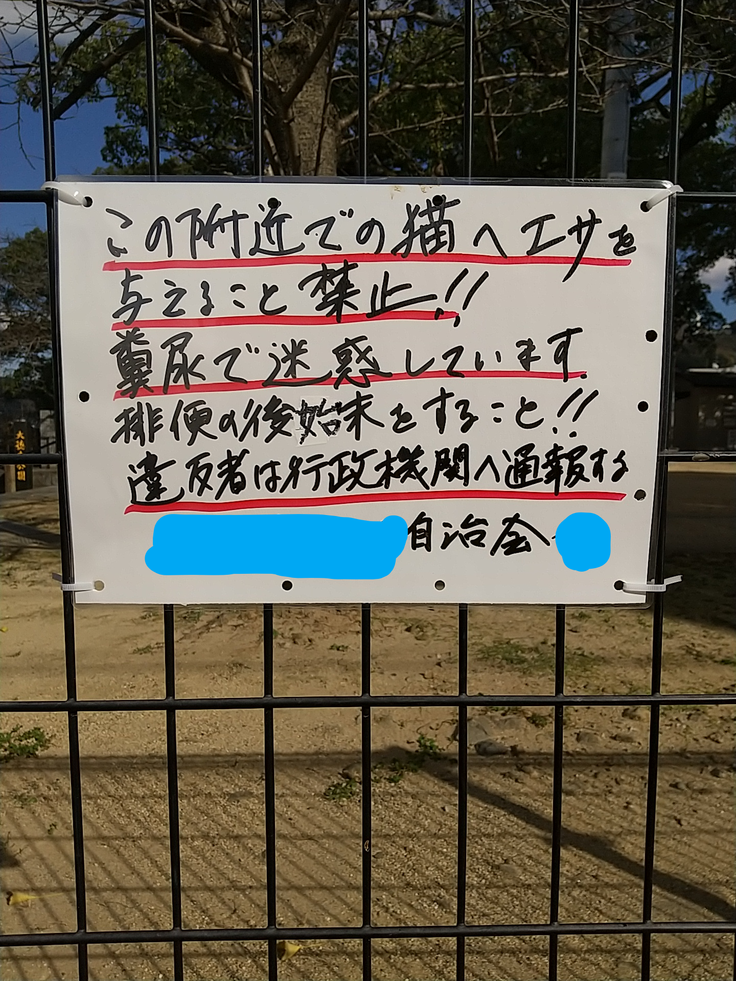 この附近での猫へエサを
与えること禁止!!
糞尿で迷惑しています.
排便の後始末をすること!!
違反者は行政機関へ通報する
自治会